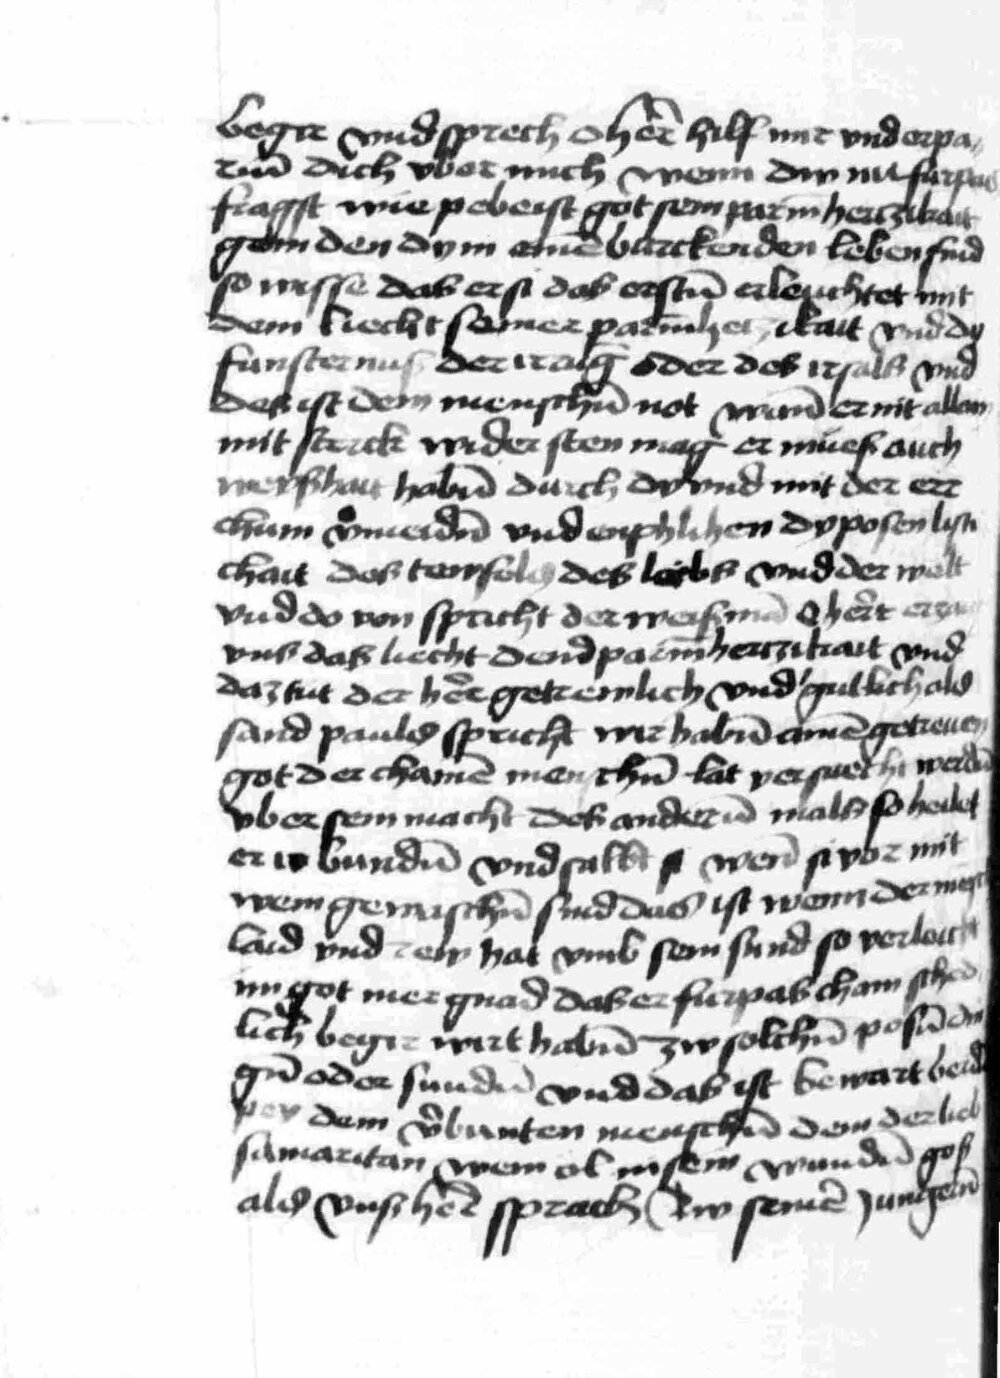 begir vnd sprech o her̄ hilf mir vnd erpa-
rm̄ dich vber mich wenn dw nu furpas
fragst wie pebeist got sein parm̄hertzikait
gein den dy in aine᷑ burckenden leben sind
so wisse das er si des erstn̄ erleuchtet mit
dem liecht seiner parm̄hertzikait vnd dy
funsternus der irrūg oder des irsals vnd
des ist dem menschn̄ not wann̄ er nit allain
mit sterck wider sten mag er mues auch
weyshait habn̄ durch dy vnd mit der er
chum v̄meidn̄ vnd enphlihen dy posen listi
chait des tewfels des leibs vnd der welt
vnd do von spricht der weis man̄ O her̄r erzaig
vns das liecht deind̓ parm̄hertzikait vnd
daz tut der her̄r getrewlich vnd gutlich als
sand pauls spricht wir habn̄ ainē getrewen
got der chainē menschn̄ lat versuecht werdn̄
vber sein macht des andern̄ mals so heilet
er ir bundn̄ vnd salbt si wen̄ si vor mit
wein gewaschn̄ sind das ist wenn der mensch
laid vnd rew hat vmb sein sund so verleicht
im got mer gnad das er furpas chain sched
lich begir wirt habn̄ zw solchn̄ posn̄ din
gn̄ oder sundn̄ vnd das ist bewart werdn̄
pey dem v̄bunten menschn̄ dem der lieb
samaritan wein ol in sein wundn̄ gos
als vns her̄r sprach Zw seinē Jungern̄